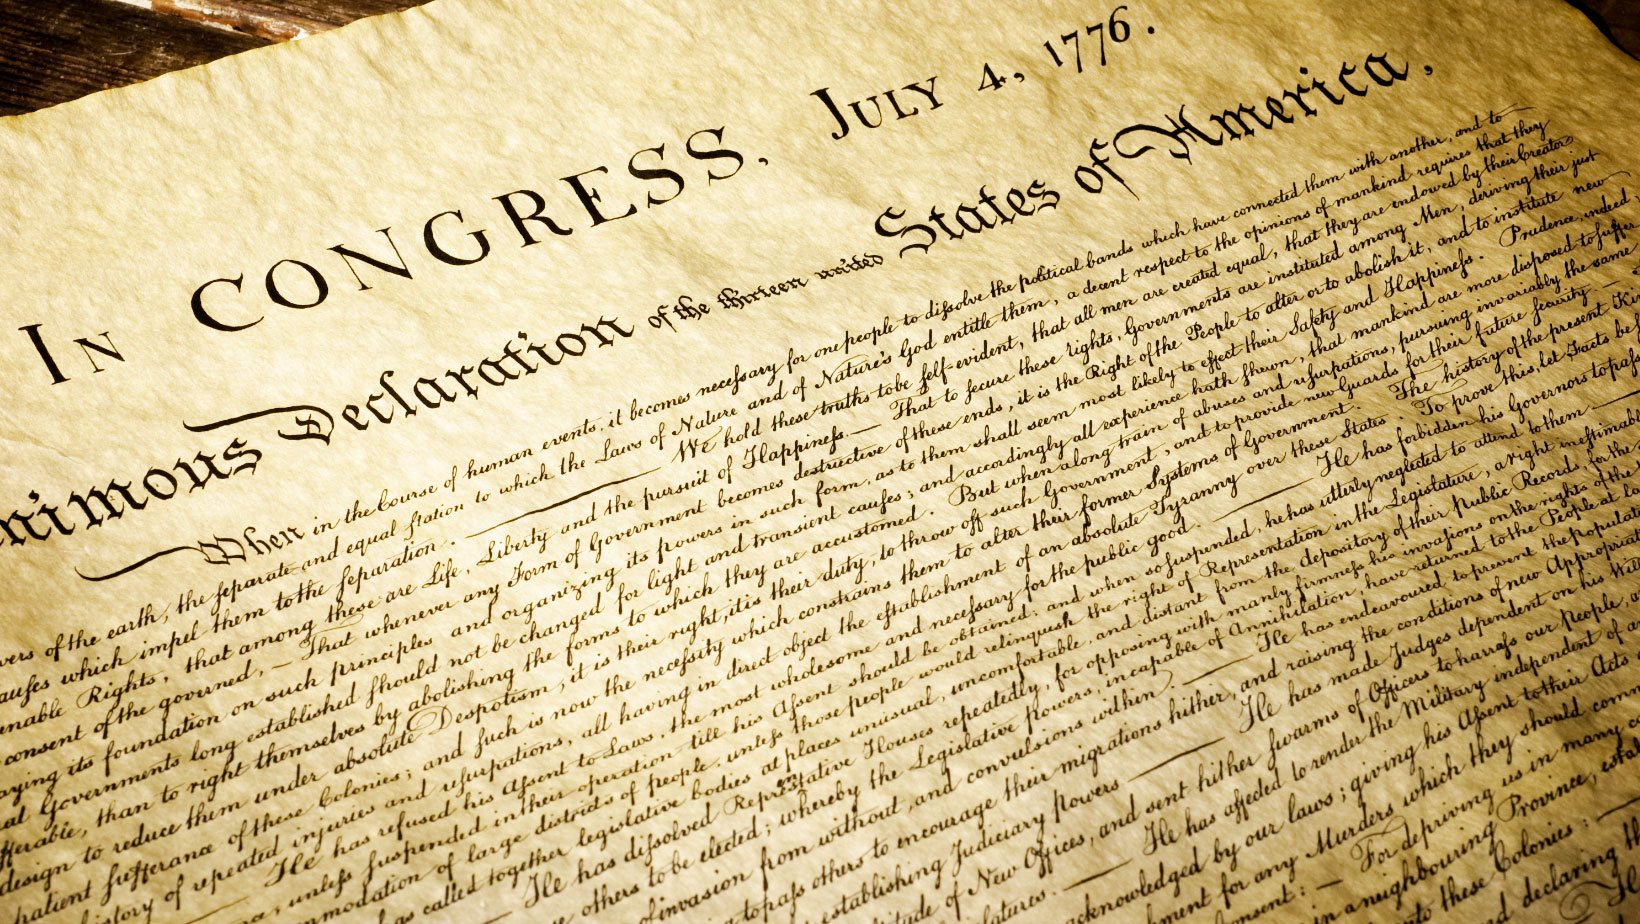 In CONGRESS, July 4, 1776.
nimous Declaration of the thirteen united States of America,
When in the Course of human events, it becomes necessary for one people to dissolve the political bands which have connected them with another, and to
wers of the earth, the separate and equal station to which the Laws of Nature and of Nature's God entitle them, a decent respect to the opinions of mankind requires that they
auses which impel them to the separation. — We hold these truths to be self-evident, that all men are created equal, that they are endowed by their Creator
enable Rights, that among these are Life, Liberty and the pursuit of Happiness.— That to secure these rights, Governments are instituted among Men, deriving their just
consent of the governed, — That whenever any Form of Government becomes destructive of these ends, it is the Right of the People to alter or to abolish it, and to institute new
aying its foundation on such principles and organizing its powers in such form, as to them shall seem most likely to effect their Safety and Happiness. Prudence, indeed,
at Governments long established should not be changed for light and transient causes; and accordingly all experience hath shewn, that mankind are more disposed to suffer
fferable, than to right themselves by abolishing the forms to which they are accustomed. But when a long train of abuses and usurpations, pursuing invariably the same
design to reduce them under absolute Despotism, it is their right, it is their duty, to throw off such Government, and to provide new Guards for their future security.—
patient sufferance of these Colonies; and such is now the necessity which constrains them to alter their former Systems of Government. The history of the present Kin
history of repeated injuries and usurpations, all having in direct object the establishment of an absolute Tyranny over these States. To prove this, let Facts be
He has refused his Assent to Laws, the most wholesome and necessary for the public good. — He has forbidden his Governors to pass
unless suspended in their operation till his Assent should be obtained; and when so suspended, he has utterly neglected to attend to them —
mmodation of large districts of people, unless those people would relinquish the right of Representation in the Legislature, a right inestimabl
as called together legislative bodies at places unusual, uncomfortable, and distant from the depository of their Public Records, for the
He has dissolved Representative Houses repeatedly, for opposing with manly firmness his invasions on the rights of the
others to be elected; whereby the Legislative powers, incapable of Annihilation, have returned to the People at la
of invasion from without, and convulsions within. — He has endeavoured to prevent the populati
to pass others to encourage their migrations hither, and raising the conditions of new Appropriat
establishing Judiciary powers — He has made Judges dependent on his Will
titude of New Offices, and sent hither swarms of Officers to harrass our People, a
latures. — He has affected to render the Military independent of a
acknowledged by our laws; giving his Assent to their Acts
ment for any Murders which they should comm
onsent: — For depriving us in many c
in a neighbouring Province, estab
to these Colonies: —
declaring th